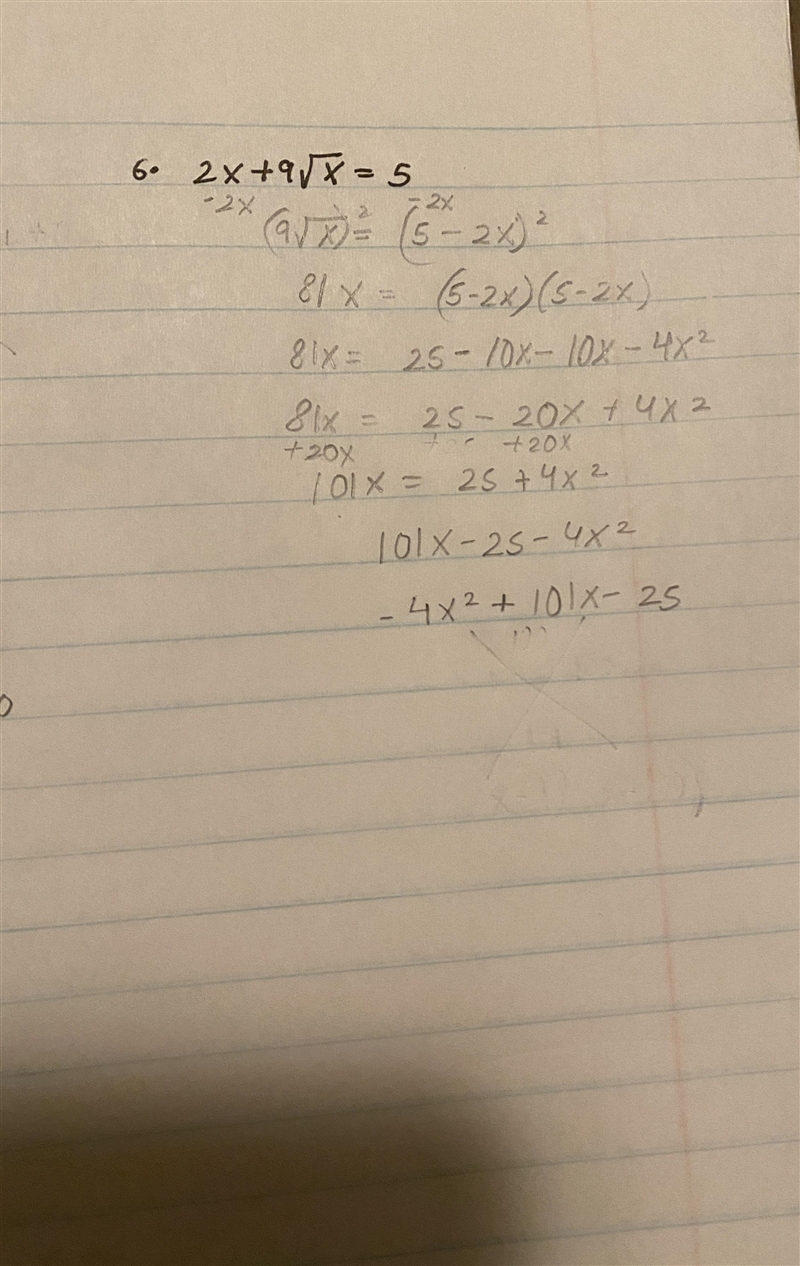 6. 2x + 9√x = 5
-2x -2x
(9√x)² = (5 - 2x)²
81x = (5-2x)(5-2x)
81x = 25 - 10x - 10x - 4x²
81x = 25 - 20x + 4x²
+20x +20x
101x = 25 + 4x²
101x - 25 - 4x²
- 4x² + 101x - 25